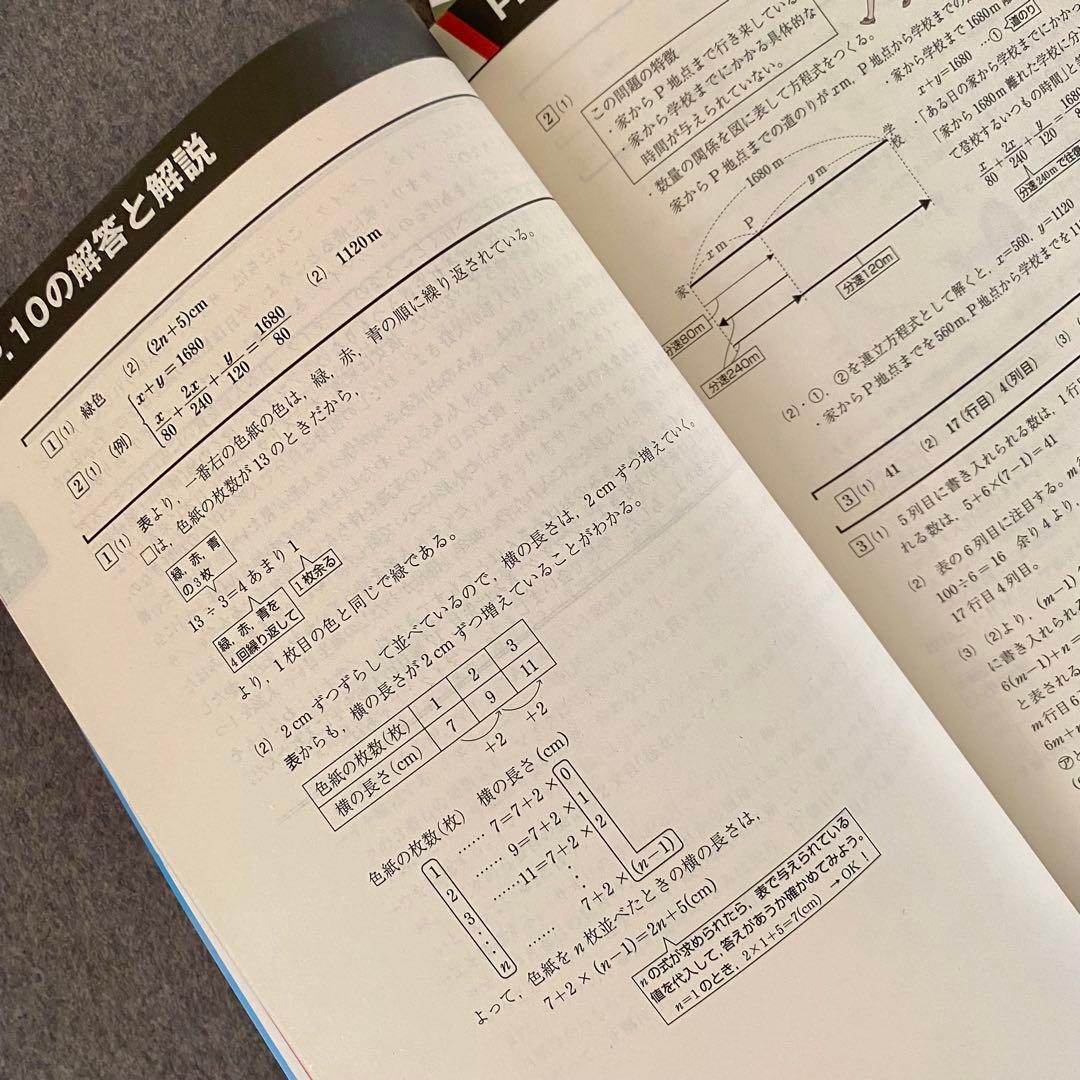 .10の解答と解説
1 (1) 緑色 (2) (2n+5)cm
2 (1) (例) { x+y=1680
x/80+2x/240+y/120=1680/80
(2) 1120m
1 (1) 表より、一番右の色紙の色は、緑、赤、青の順に繰り返されている。
□は、色紙の枚数が13のときだから、
緑、赤、青
の3枚
13÷3=4 あまり 1
1枚余る
緑、赤、青を
4回繰り返して
より、1枚目の色と同じで緑である。
(2) 2cmずつずらして並べているので、横の長さは、2cmずつ増えていく。
表からも、横の長さが2cmずつ増えていることがわかる。
色紙の枚数(枚) 1 2 3
横の長さ(cm) 7 9 11
+2 +2
色紙の枚数(枚) 横の長さ(cm)
1 …… 7=7+2×0
2 …… 9=7+2×1
3 ……11=7+2×2
⋮ ⋮
n …… 7+2×(n-1)
よって、色紙をn枚並べたときの横の長さは、
7+2×(n-1)=2n+5(cm)
nの式が求められたら、表で与えられている
値を代入して、答えがあうか確かめてみよう。
n=1のとき、2×1+5=7(cm) → OK!
2 (1)
この問題の特徴
・家からP地点まで行き来している
・家から学校までにかかる具体的な
時間が与えられていない。
・数量の関係を図に表して方程式をつくる。
家からP地点までの道のりがxm、P地点から学校までの
家から学校まで1680m
x+y=1680 …① 道のり
「ある日の家から学校までにかかっ
「家から1680m離れた学校に分
て登校するいつもの時間」と等
x/80+2x/240+y/120=1680/8
分速240mで往復
学校
1680m
ym
xm
P
家
分速120m
分速80m
分速240m
(2)・①、②を連立方程式として解くと、x=560, y=1120
・家からP地点までを560m、P地点から学校までを11
3 (1) 41 (2) 17(行目) 4(列目) (3)
3 (1) 5列目に書き入れられる数は、1行
れる数は、5+6×(7-1)=41
(2) 表の6列目に注目する。m行
100÷6=16 余り4より、
17行目4列目。
(3) (2)より、(m-1)
に書き入れられ
6(m-1)+n=
と表される
m行目6
6m+
㋐と